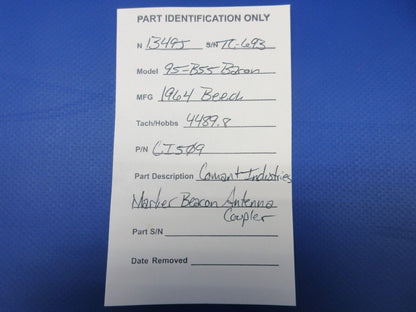 PART IDENTIFICATION ONLY
N 1349J S/N TC-693
Model 95-B55 Baron
MFG 1964 Beech
Tach/Hobbs 4489.8
P/N CI509
Part Description Comant Industries
Marker Beacon Antenna
Coupler
Part S/N
Date Removed